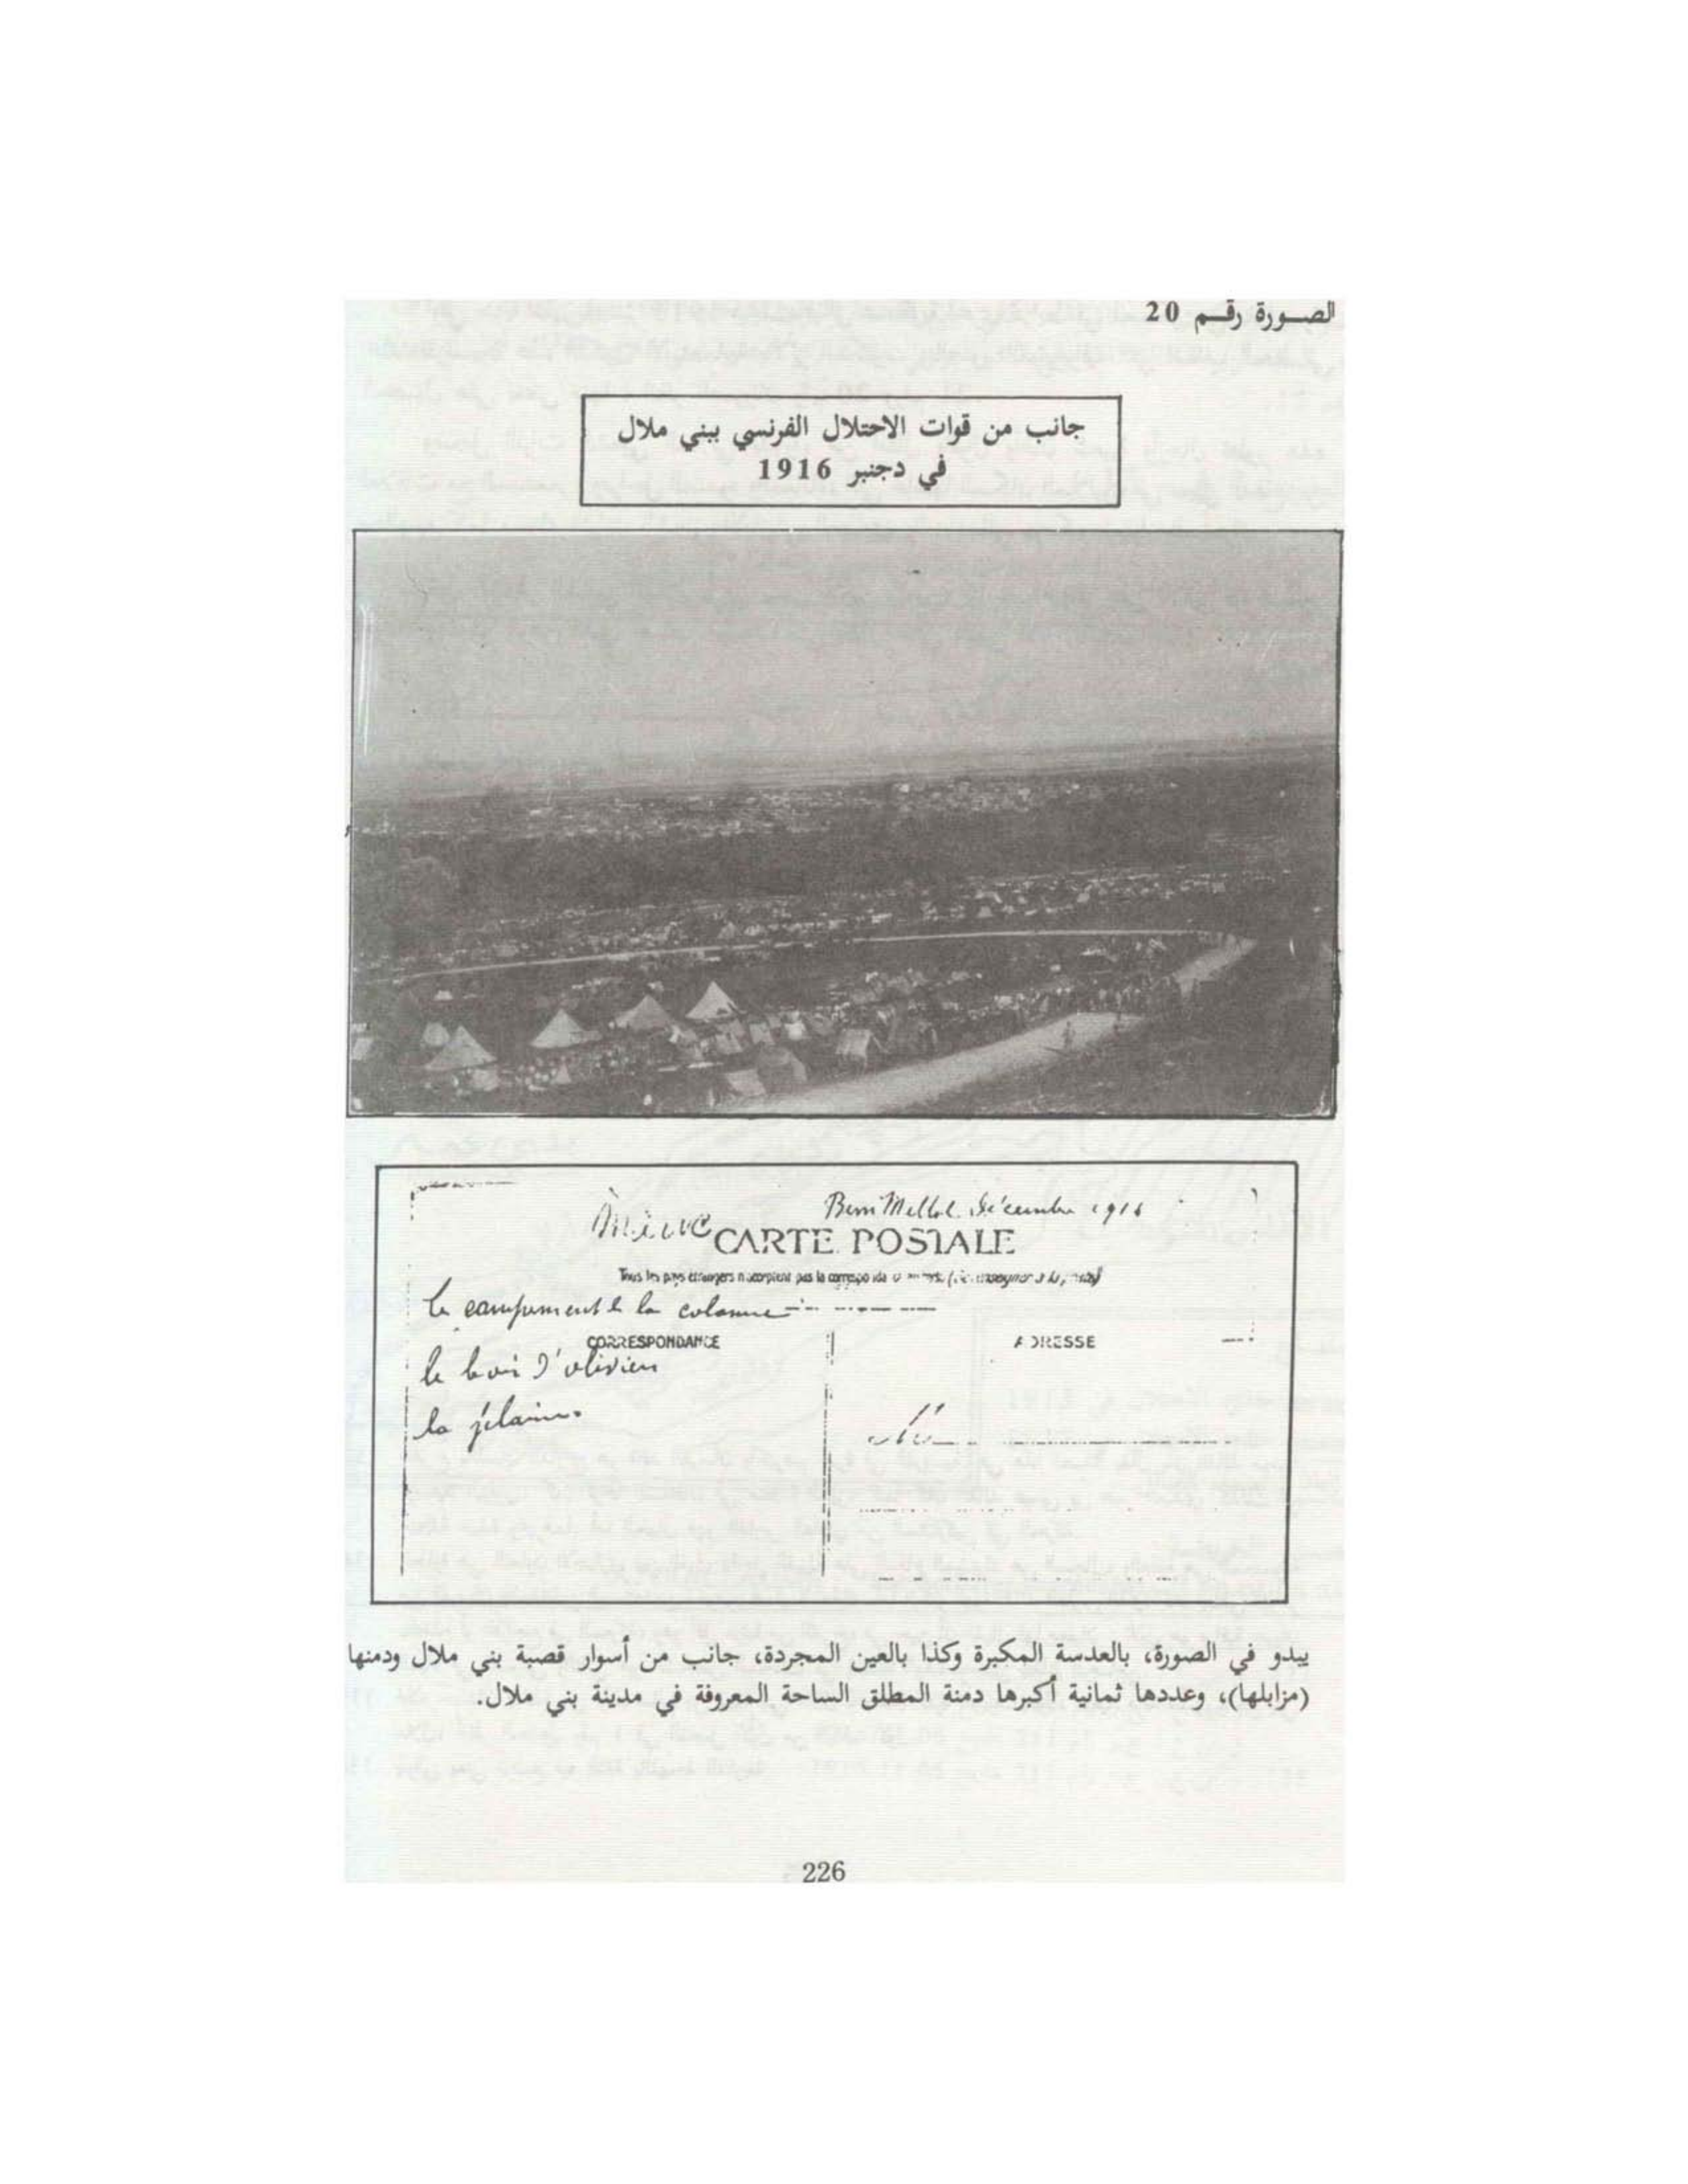 الصورة رقم 20
جانب من قوات الاحتلال الفرنسي ببني ملال
في دجنبر 1916
Beni Mellal Décembre 1916
CARTE POSTALE
Tous les pays étrangers n'acceptent pas la
le campement de la colonne
CORRESPONDANCE
ADRESSE
le bois d'oliviers
la plaine
يبدو في الصورة، بالعدسة المكبرة وكذا بالعين المجردة، جانب من أسوار قصبة بني ملال ودمنها
(مزابلها)، وعددها ثمانية أكبرها دمنة المطلق الساحة المعروفة في مدينة بني ملال.
226